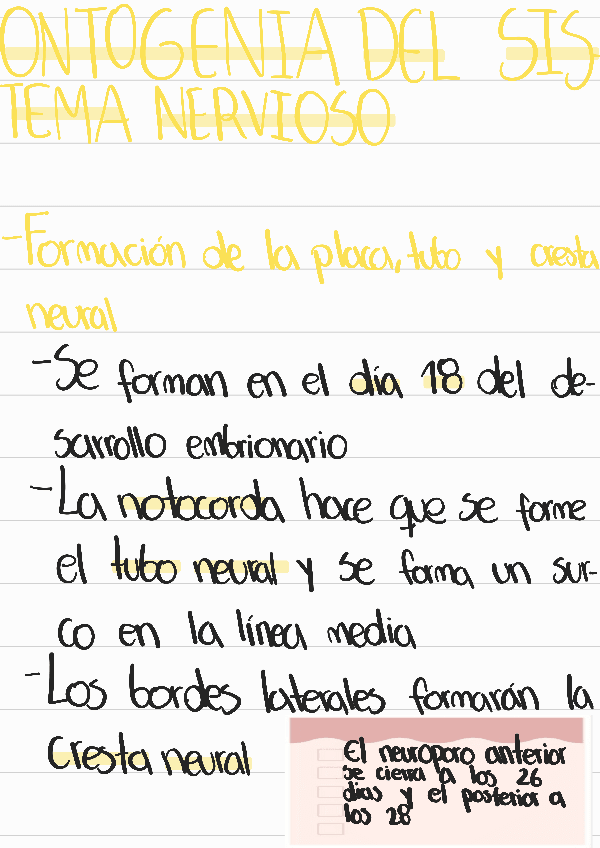 ONTOGENIA DEL SIS
TEMA NERVIOSO
-Formación de la placa, tubo y cresta
neural
-Se forman en el día 18 del de-
sarrollo embrionario
-La notocorda hace que se forme
el tubo neural y se forma un sur-
co en la línea media
-Los bordes laterales formarán la
cresta neural
El neuroporo anterior
se cierra a los 26
días y el posterior a
los 28